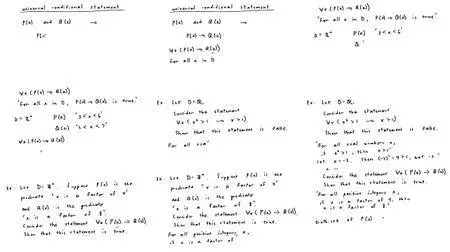 universal conditional statement
P(x) and Q(x) →
P(x
universal conditional statement
P(x) and Q(x) →
P(x) → Q(x)
∀x (P(x) → Q(x))
For all x in D
∀x (P(x) → Q(x))
"For all x in D, P(x) → Q(x) is true."
D = Z⁺ P(x) "3 < x < 6"
Q
∀x (P(x) → Q(x))
"For all x in D, P(x) → Q(x) is true."
D = Z⁺ P(x) "3 < x < 6"
Q(x) "2 < x < 7"
∀x (P(x) → Q(x))
Ex. Let D =
Consider the statement
∀x (x² > 1 → x > 1)
Show that this statement is false.
For all real
Ex. Let D =
Consider the statement
∀x (x² > 1 → x > 1)
Show that this statement is false.
"For all real numbers x,
if x² > 1, then x > 1"
Let x = -2. Then (-2)² = 4 > 1, but -2
Ex. Let D = Z⁺. Suppose P(x) is the
predicate "x is a factor of 4"
and Q(x) is the predicate
"x is a factor of 8".
Consider the statement ∀x (P(x) → Q(x)).
Show that this statement is true.
Ex. Let D = Z⁺. Suppose P(x) is the
predicate "x is a factor of 4"
and Q(x) is the predicate
"x is a factor of 8".
Consider the statement ∀x (P(x) → Q(x)).
Show that this statement is true.
For all positive integers x,
if x is a factor of
"x is a factor of 4"
and Q(x) is the predicate
"x is a factor of 8".
Consider the statement ∀x (P(x) → Q(x)).
Show that this statement is true.
"For all positive integers x,
if x is a factor of 4, then
x is a factor of 8."
truth set of P(x)